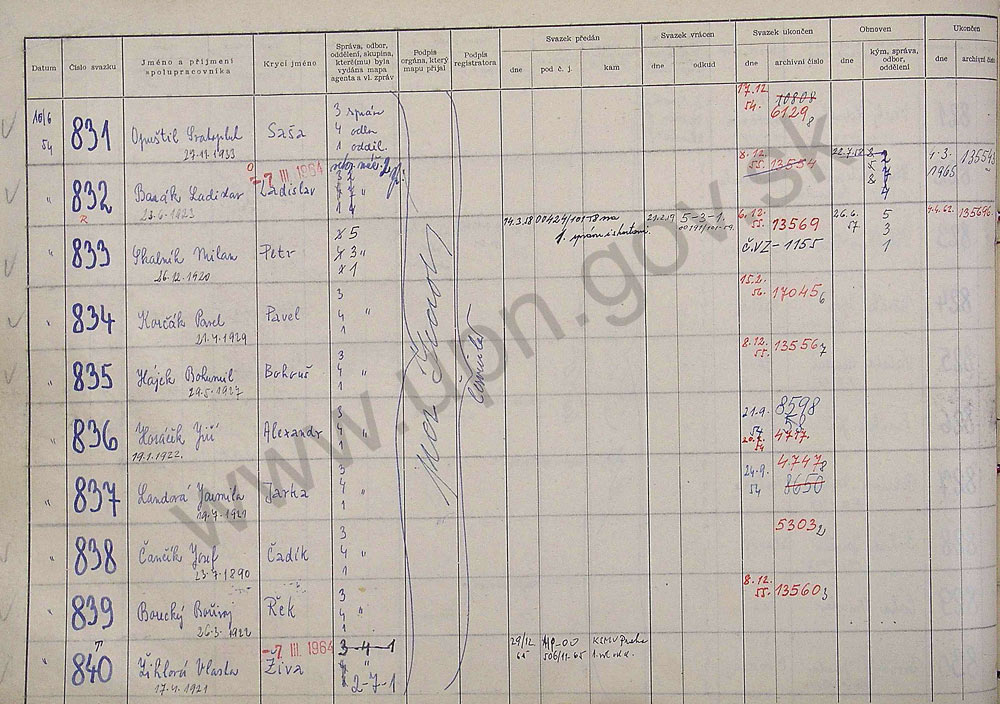 Datum
Číslo svazku
Jméno a příjmení
spolupracovníka
Krycí jméno
Správa, odbor,
oddělení, skupina,
kterě(mu) byla
vydána mapa
agenta a vl. zpráv
Podpis
orgána, který
mapu přijal
Podpis
registratora
Svazek předán
dne
pod č. j.
kam
Svazek vrácen
dne
odkud
Svazek ukončen
dne
archivní číslo
Obnoven
dne
kým, správa,
odbor,
oddělení
Ukončen
dne
archivní číslo
831
27.11.1933
Saša
3 správa
4 odbor
1 oddíl.
17.12.
54.
10808
6129
8
832
Barák Ladislav
23.6.1923
-7 III. 1964
Ladislav
8.12.
55.
13554
1.3.
1965
833
Skalník Milan
26.12.1920
Petr
5
3
1
14.3.58
5-3-1.
6.12.
55.
13569
č.VZ-1155
26.6.
57
5
3
1
834
Korčák Pavel
21.4.1929
Pavel
3
4 "
1
15.2.
56.
17045
6
835
Hájek Bohumil
29.5.1927
Bohouš
3
4 "
1
8.12.
55.
13556
7
836
Horáček Jiří
19.1.1922.
Alexandr
3
4 "
1
21.9.
54
8598
4717
837
Landová Jarmila
19.7.1921
Jarka
3
4 "
1
24.9.
54
4747
8
8650
838
Čančík Josef
23.7.1890
Čadík
3
4 "
1
5303
2
839
Borecký Bořivoj
26.3.1922
Řek
3
4 "
1
8.12.
55.
13560
3
840
Žihlová Vlasta
17.4.1921
-7 III. 1964
Živa
3-4-1
2-7-1
29/12
65
506/11-65
www.upn.gov.sk